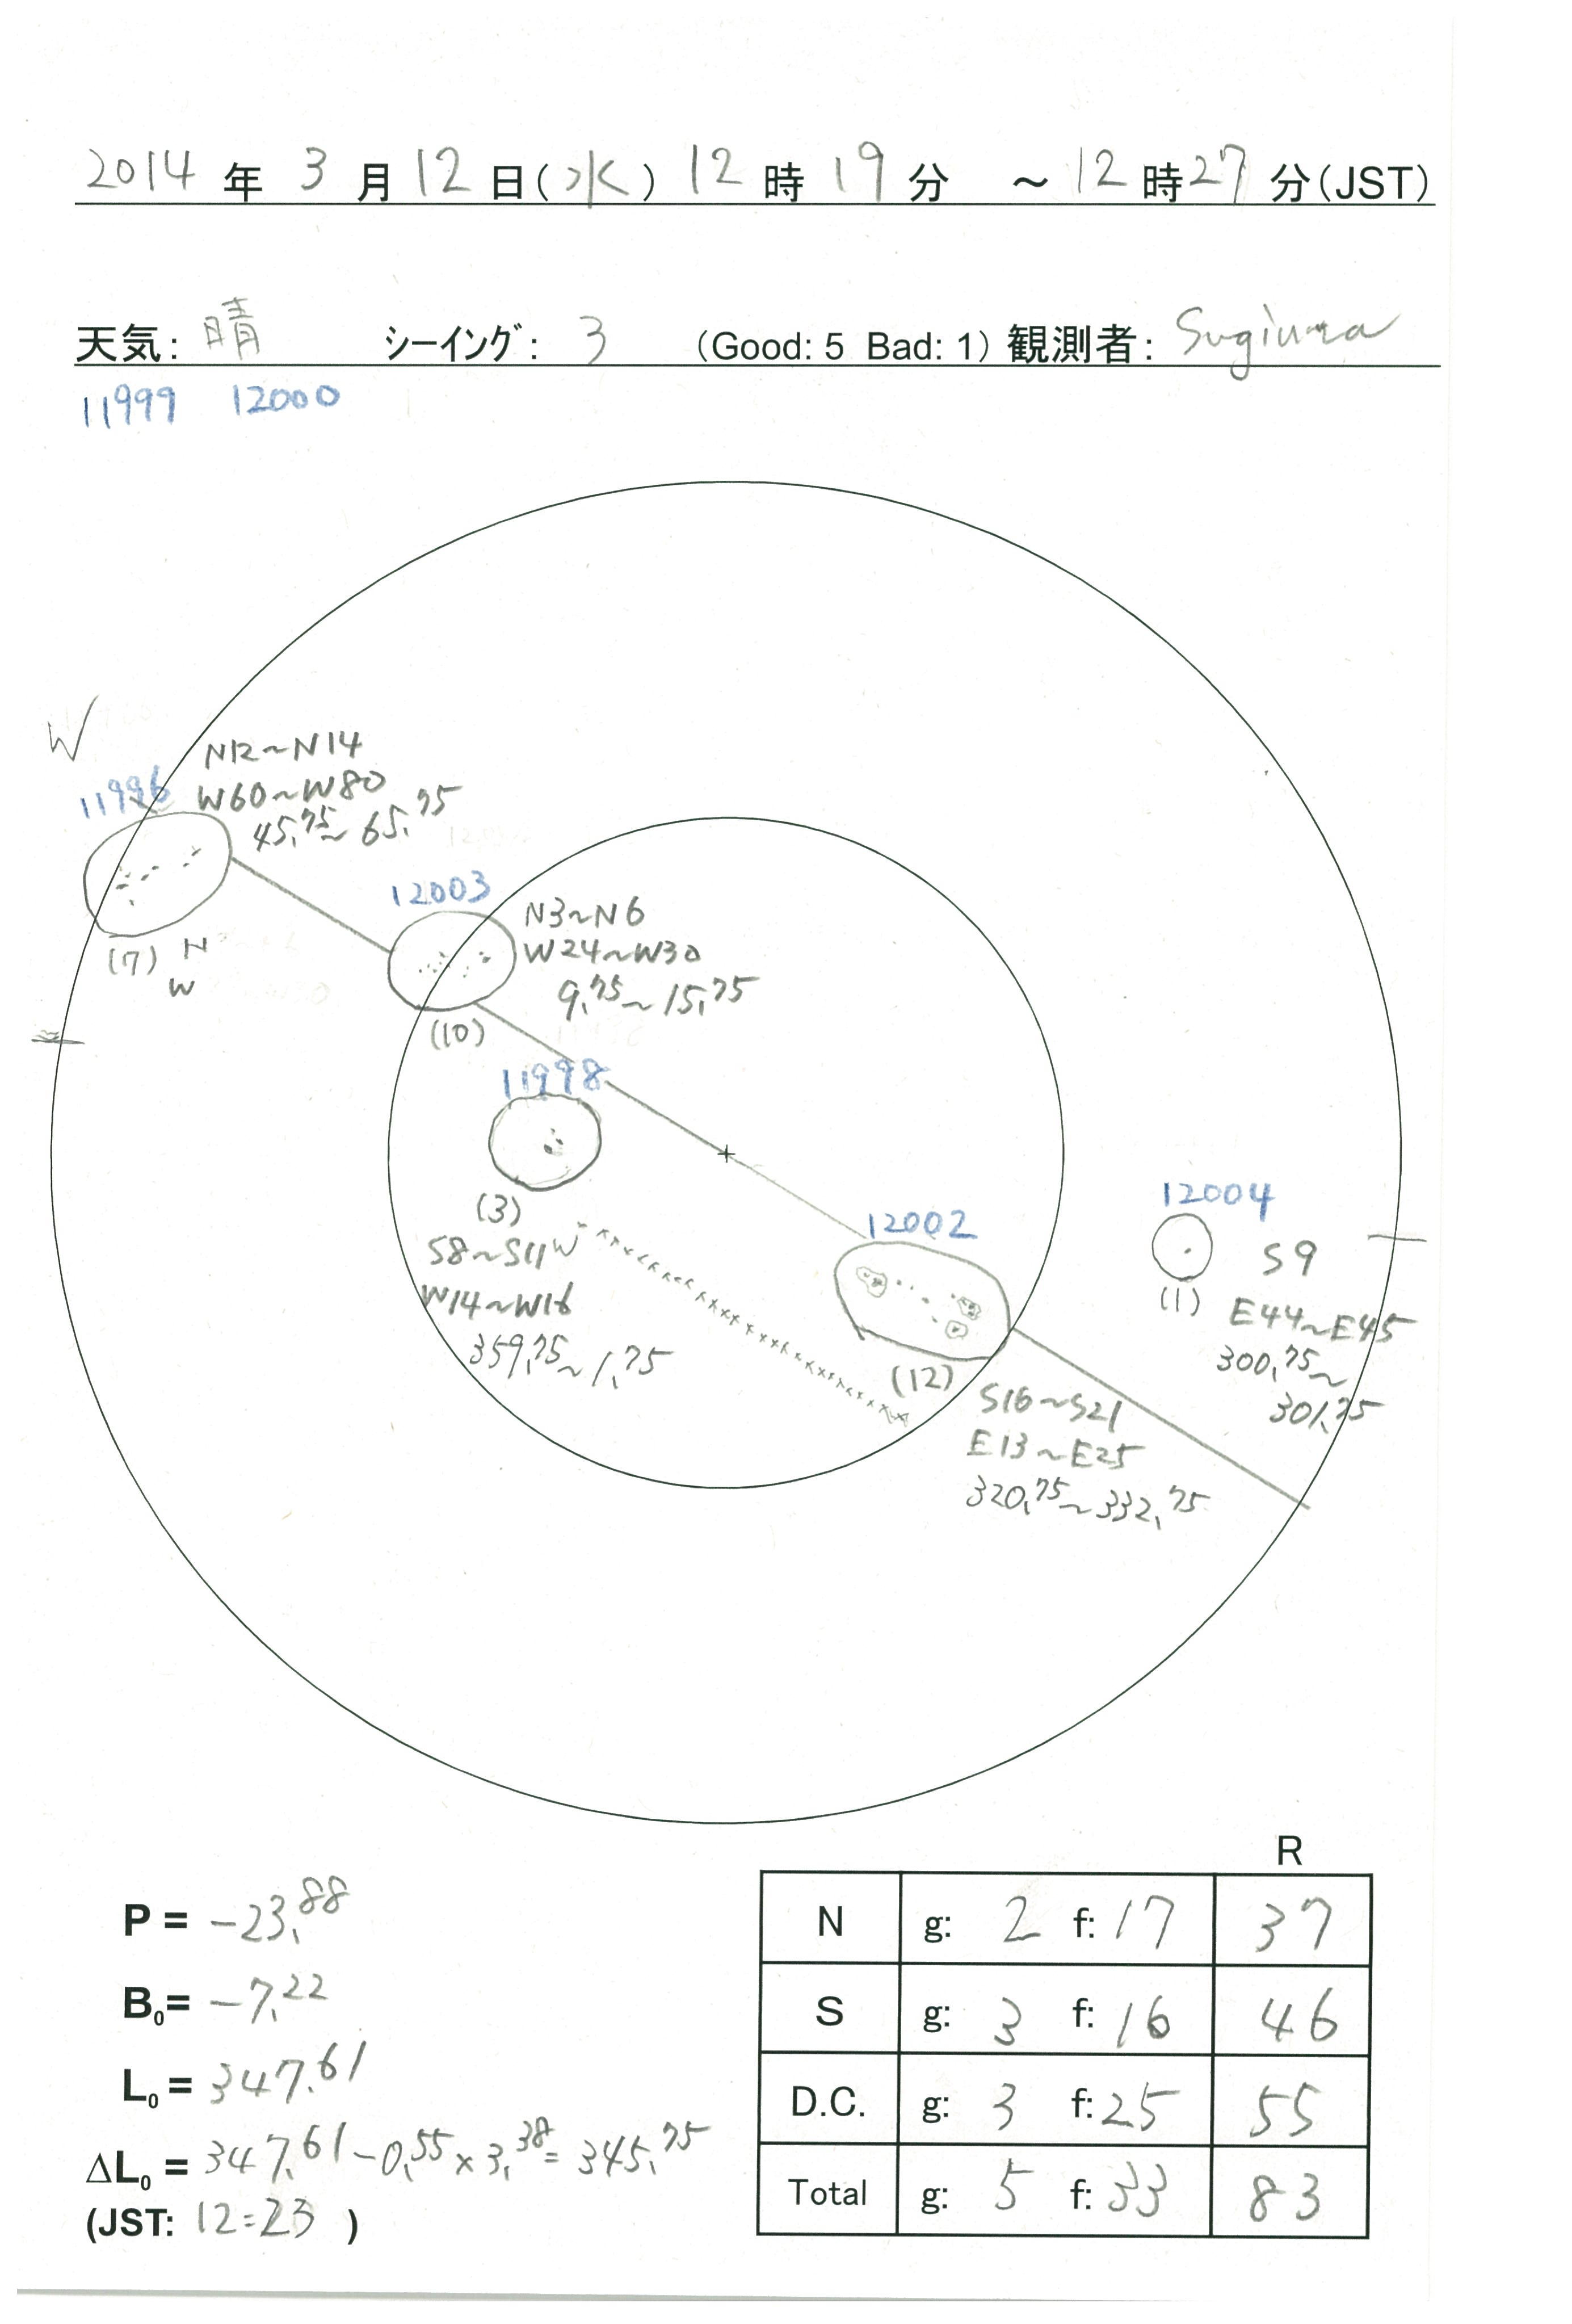 2014 年 3 月 12 日(水) 12 時 19 分 ～ 12 時 27 分(JST)
天気: 晴 シーイング: 3 (Good: 5 Bad: 1) 観測者: Sugiura
11999 12000
W
N12~N14
11996 W60~W80
45.75~65.75
(7) N
W
12003
N3~N6
W24~W30
9.75~15.75
(10)
11998
(3)
S8~S11
W
W14~W16
359.75~1.75
12002
(12)
S16~S21
E13~E25
320.75~332.75
12004
S9
(1)
E44~E45
300.75~
301.75
P = -23.88
B₀= -7.22
L₀ = 347.61
ΔL₀ = 347.61-0.55×3.38=345.75
(JST: 12:23 )
R
N g: 2 f: 17 37
S g: 3 f: 16 46
D.C. g: 3 f: 25 55
Total g: 5 f: 33 83